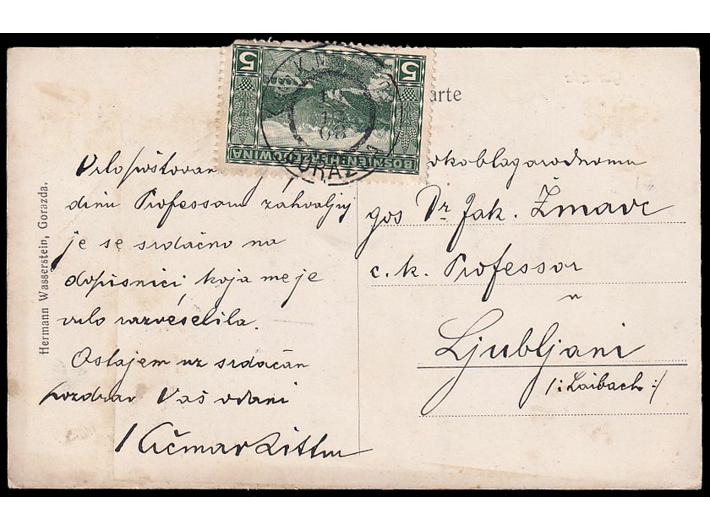 5 5
BOSNIEN-HERCEGOVINA
GORAŽDA
arte
Hermann Wasserstein, Gorazda.
Vrlo poštovan
dinu Professoru zahvaljuj
je se srdačno na
dopisnici, koja me je
vrlo razveselila.
Ostajem uz srdačan
pozdrav Vaš odani
okoblagorodnomu
gos Dr Jak. Žmavc
c. k. Professor
u
Ljubljani
/: Laibach :/